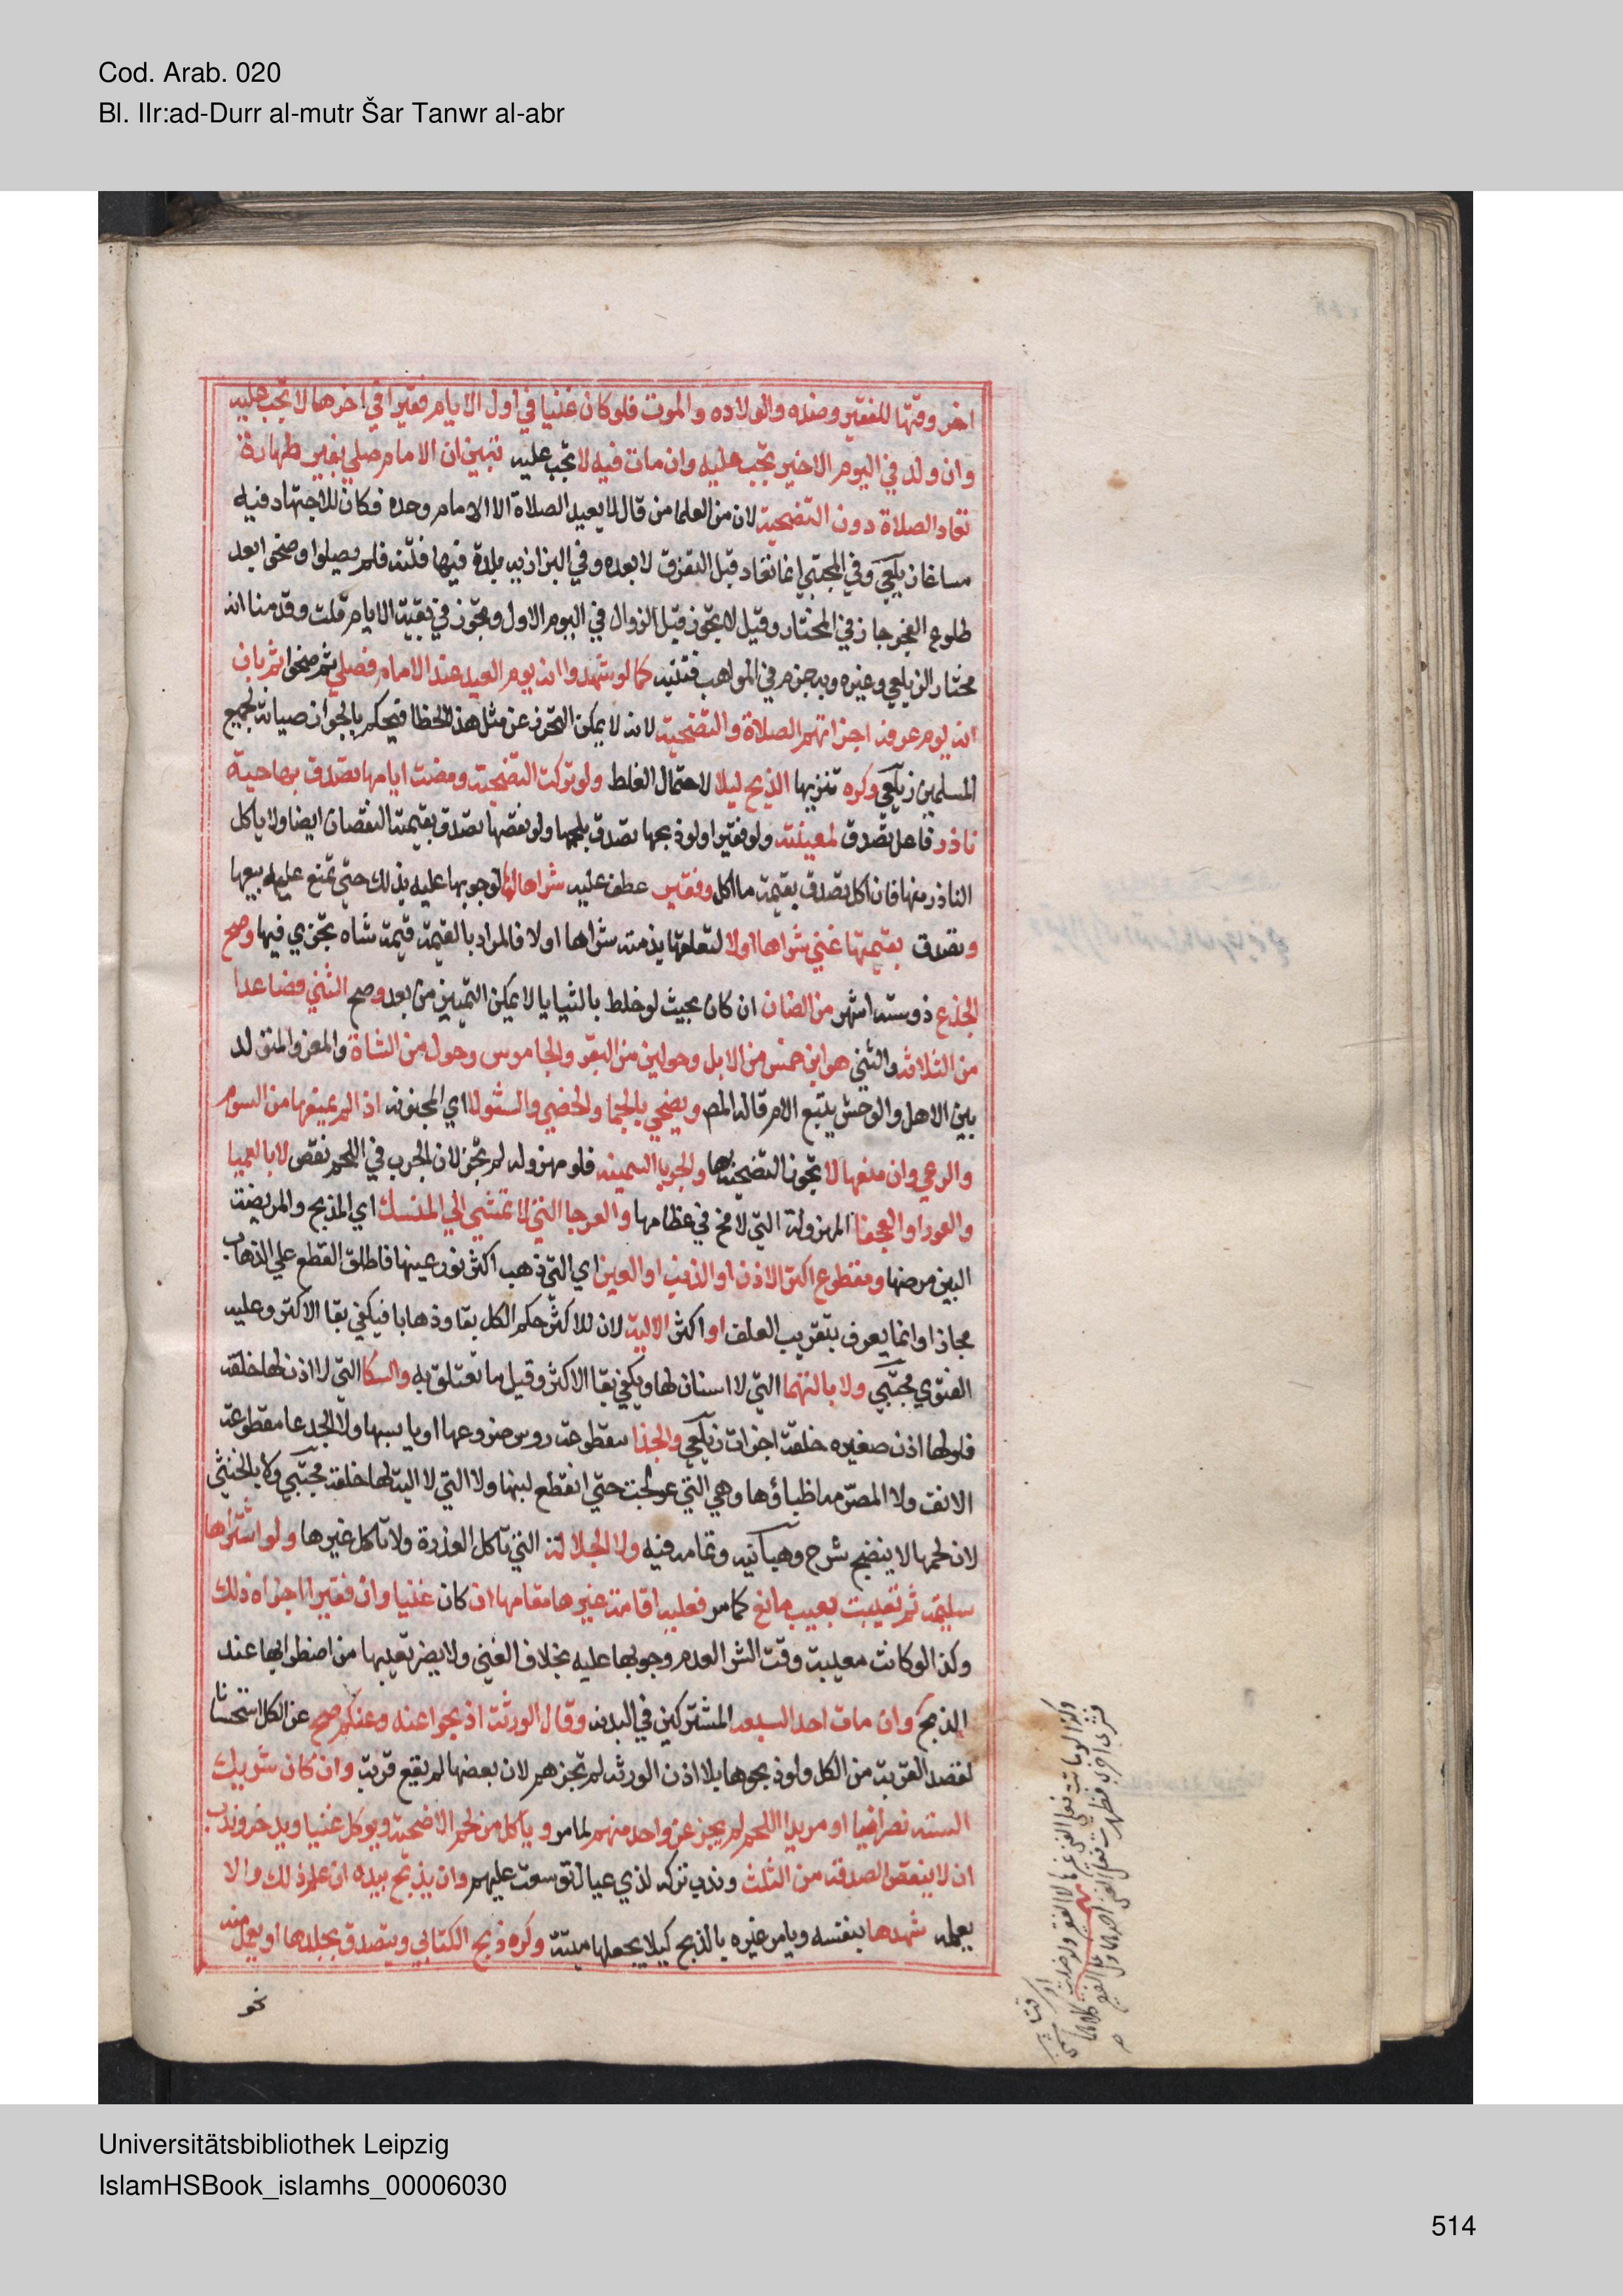 Cod. Arab. 020
Bl. IIr:ad-Durr al-mutr Šar Tanwr al-abr
اخر وقتها للفقير وضده والولاده والموت فلو كان غنيا في اول الايام فقيرا في اخرها لا تجب عليه
وان ولد في اليوم الاخير تجب عليه وان مات فيه لا تجب عليه تبين ان الامام صلي بغير طهارة
تعاد الصلاة دون التضحية لان من العلما من قال لا يعيد الصلاة الا الامام وحده فكان للاجتهاد فيه
مساغا زيلعي وفي المجتبي انما تعاد قبل التفرق لا بعده وفي البزازيه بلدة فيها فتنه فلم يصلوا وضحوا بعد
طلوع الفجر جاز في المختار وقيل لا تجوز قبل الزوال في اليوم الاول وتجوز في بقية الايام قلت وقدمنا انه
مختار الزيلعي وغيره وبه جزم في المواهب فتنبه كما لو شهدوا انه يوم العيد عند الامام فصلي ثم ضحوا ثم بان
انه يوم عرفه اجزاتهم الصلاة والتضحية لانه لا يمكن التحرز عن مثل هذا الخطا فيحكم بالجواز صيانة لجميع
المسلمين زيلعي وكره تنزيها الذبح ليلا لاحتمال الغلط ولو تركت التضحية ومضت ايامها تصدق بها حية
ناذر فاعل تصدق لمعينة ولو فقيرا ولو ذبحها تصدق بلحمها ولو نقصها تصدق بقيمة النقصان ايضا ولا ياكل
الناذر منها فان اكل تصدق بقيمة ما اكل وفقير عطف عليه شراها لها لوجوبها عليه بذلك حتي تمنع عليه بيعها
وتصدق بقيمتها غني شراها اولا لتعلقها بذمته شراها اولا فالمراد بالقيمة قيمة شاه تجزي فيها وصح
الجذع ذو ستة اشهر من الضان ان كان بحيث لو خلط بالثنايا لا يمكن التمييز من بعد وصح الثني فصاعدا
من الثلاثة والثني هو ابن خمس من الابل وحولين من البقر والجاموس وحول من الشاة والمعز والمتولد
بين الاهل والوحش يتبع الام قاله المص ويضحي بالجما والخصي والثولا اي المجنونه اذا لم يمنعها من السوم
والرعي وان منعها لا تجوز التضحية بها والجربا السمينه فلو مهزوله لم تجز لان الجرب في اللحم نقص لا بالعميا
والعورا والعجفا المهزولة التي لا مخ في عظامها والعرجا التي لا تمشي الي المنسك اي المذبح والمريضة
البين مرضها ومقطوع اكثر الاذن او الذنب او العين اي التي ذهب اكثر نور عينها فاطلق القطع علي الذهاب
مجازا وانما يعرف بتقريب العلف او اكثر الالية لان للاكثر حكم الكل بقا وذهابا فيكفي بقا الاكثر وعليه
الفتوي مجتبي ولا بالهتما التي لا اسنان لها ويكفي بقا الاكثر وقيل ما تعتلق به والسكا التي لا اذن لها خلقة
فلو لها اذن صغيره خلقة اجزات زيلعي والجذا مقطوعة روس ضروعها او يابستها ولا الجدعا مقطوعة
الانف ولا المصرمة اظباؤها وهي التي عولجت حتي انقطع لبنها ولا التي لا الية لها خلقة مجتبي ولا بالخنثي
لان لحمها لا ينضج شرح وهبانيه وتمامه فيه ولا الجلالة التي تاكل العذرة ولا تاكل غيرها ولو اشتراها
سليمة ثم تعيبت بعيب مانع كما مر فعليه اقامة غيرها مقامها ان كان غنيا وان فقيرا اجزاه ذلك
وكذا لو كانت معيبة وقت الشرا لعدم وجوبها عليه بخلاف الغني ولا يضر تعيبها من اضطرابها عند
الذبح وان مات احد السبعه المشتركين في البدنه وقال الورثة اذبحوا عنه وعنكم صح عن الكل استحسانا
لقصد القربة من الكل ولو ذبحوها بلا اذن الورثه لم تجزهم لان بعضها لم يقع قربة وان كان شريك
الستة نصرانيا او مريدا اللحم لم يجز عن واحد منهم لما مر وياكل من لحم الاضحية ويوكل غنيا ويدخر وندب
ان لا ينقص الصدقة من الثلث وندب تركه لذي عيال توسعة عليهم وان يذبح بيده ان علم ذلك والا
يعلمه شهدها بنفسه ويامر غيره بالذبح كيلا يجعلها ميتة وكره ذبح الكتابي ويتصدق بجلدها او يعمل منه
نحو
Universitätsbibliothek Leipzig
IslamHSBook_islamhs_00006030
514